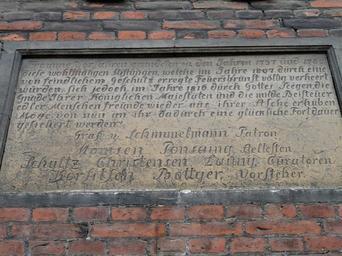 in den Jahren 1737 und
diese wohlthätigen Stiftungen, welche im Jahre 1807 durch eine
von feindlichem Geschütz erregte Feuersbrunst völlig verheert
wurden, sich jedoch im Jahre 1816 durch Gottes Seegen, die
Gnade Ihrer Königlichen Majestäten und die milde Beisteuer
edler Menschen Freunde wieder aus ihrer Asche erhuben
Möge von nun an ihr dadurch eine glückliche Fortdauer
gesichert werden.
Graf v. Schimmelmann Patron
Monsen Tonsaing Aeltesten
Schultz Christensen Curatoren
Böttger Vorsteher